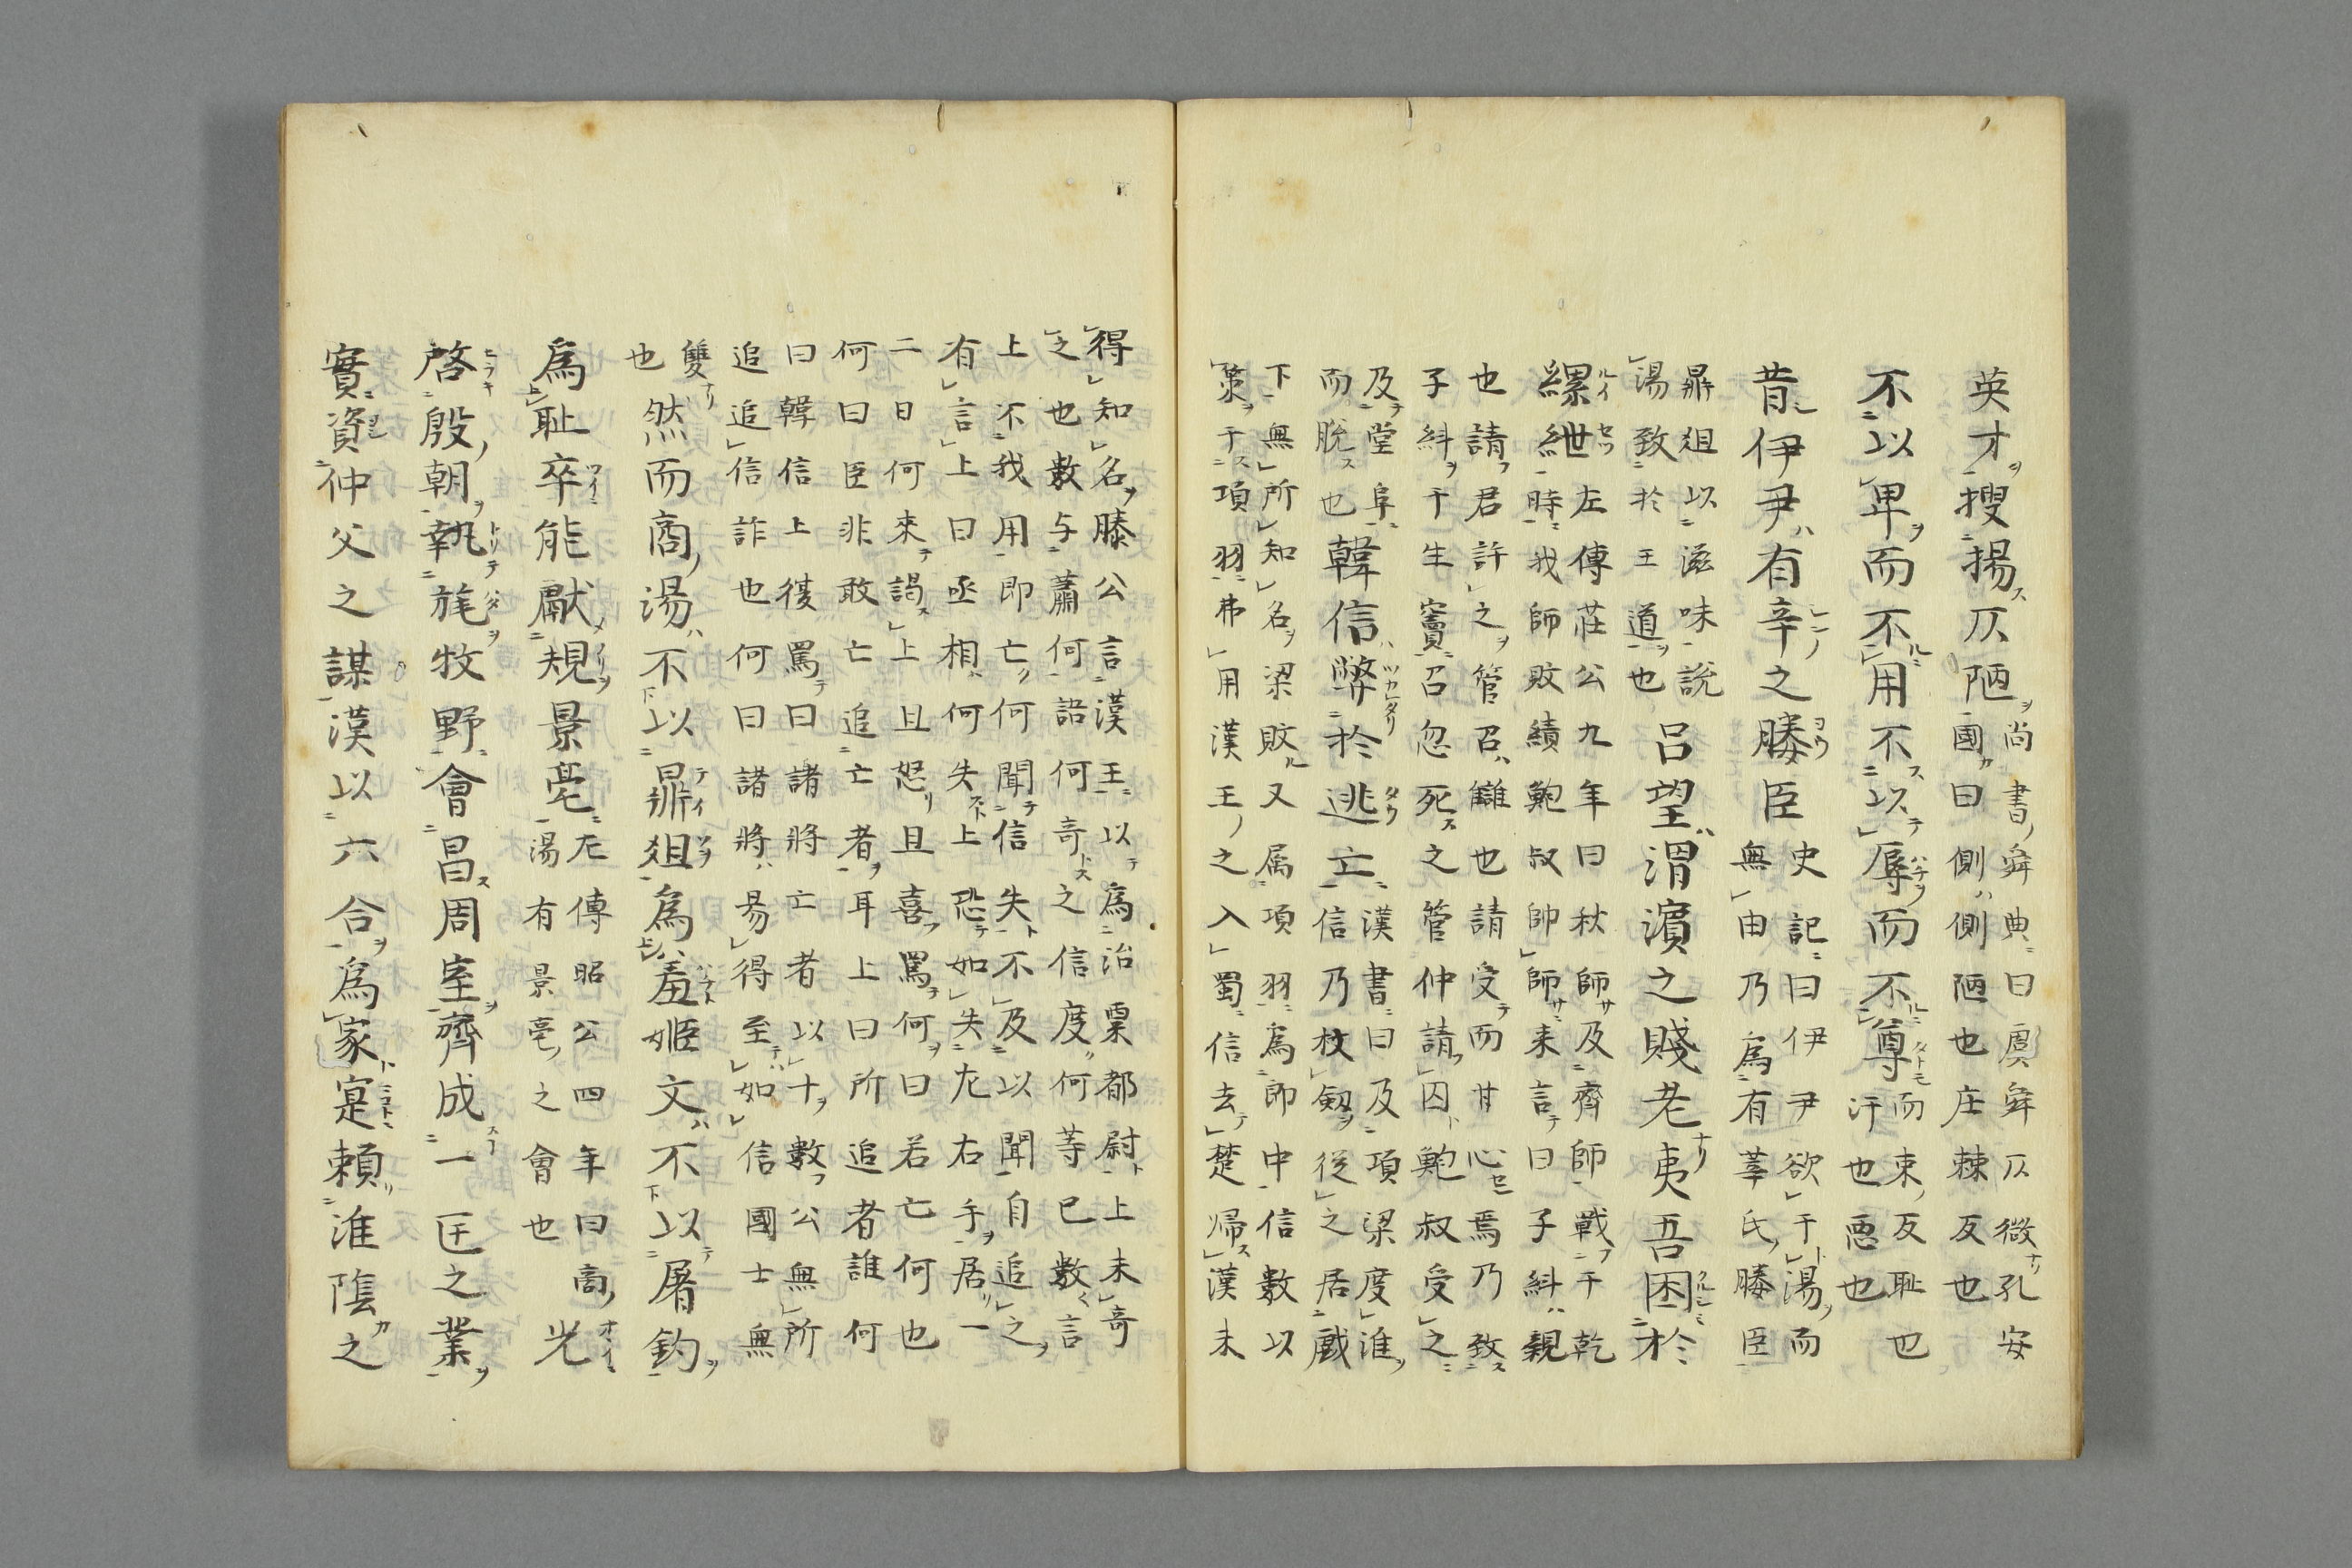 英才搜揚仄陋
尚書舜典曰虞舜仄微孔安
國曰側側陋也庄棘反也
不以卑而不用不以辱而不尊
而束反耻也
汙也惡也
昔伊尹有辛之媵臣
史記曰伊尹欲干湯而
無由乃爲有莘氏媵臣
鼎俎以滋味説
湯致於王道也
呂望渭濱之賤老夷吾困於
縲紲
左傳莊公九年曰秋師及齊師戰于乾
時我師敗績鮑叔帥師来言曰子糾親
也請君許之管召讎也請受而甘心焉乃致
子糾于生竇召忽死之管仲請囚鮑叔受之
及堂阜
而脱也
韓信弊於逃亡
漢書曰及項梁度淮
信乃杖劔從之居戲
下無所知名梁敗又属項羽爲郎中信數以
策于項羽弗用漢王之入蜀信去楚歸漢未
得知名滕公言漢王以爲治粟都尉上未奇
之也數与蕭何語何奇之信度何等已數言
上不我用即亡何聞信失不及以聞自追之
有言上曰丞相何失上恐如失左右手居一
二日何來謁上且怒且喜罵何曰若亡何也
何曰臣非敢亡追亡者耳上曰所追者誰何
曰韓信上復罵曰諸將亡者以十數公無所
追追信詐也何曰諸將易得至如信國士無
雙
也
然而商湯不以鼎俎爲羞姬文不以屠釣
爲耻卒能獻規景亳
左傳昭公四年曰商
湯有景亳之會也
光
啓殷朝執旄牧野會昌周室齊成一匡之業
實資仲父之謀漢以六合爲家寔頼淮陰之